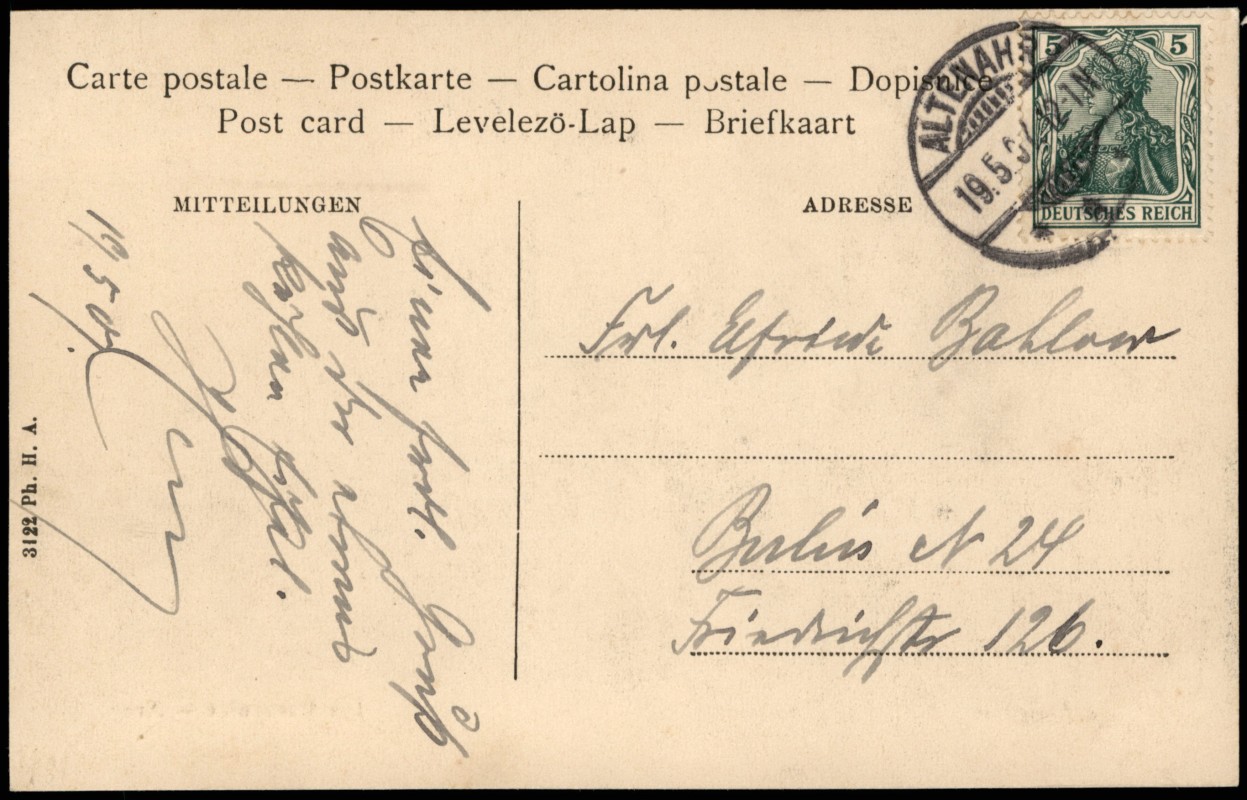 Carte postale — Postkarte — Cartolina postale — Dopisnice
Post card — Levelező-Lap — Briefkaart
ALTENAHR
19.5.
12-1N
5 5
DEUTSCHES REICH
MITTEILUNGEN
ADRESSE
19.5.07.
Einen herzl. Gruß
aus der
Frl. Elfriede Bahlow
Berlin N 24
Friedrichstr 126.
3122 Ph. H. A.